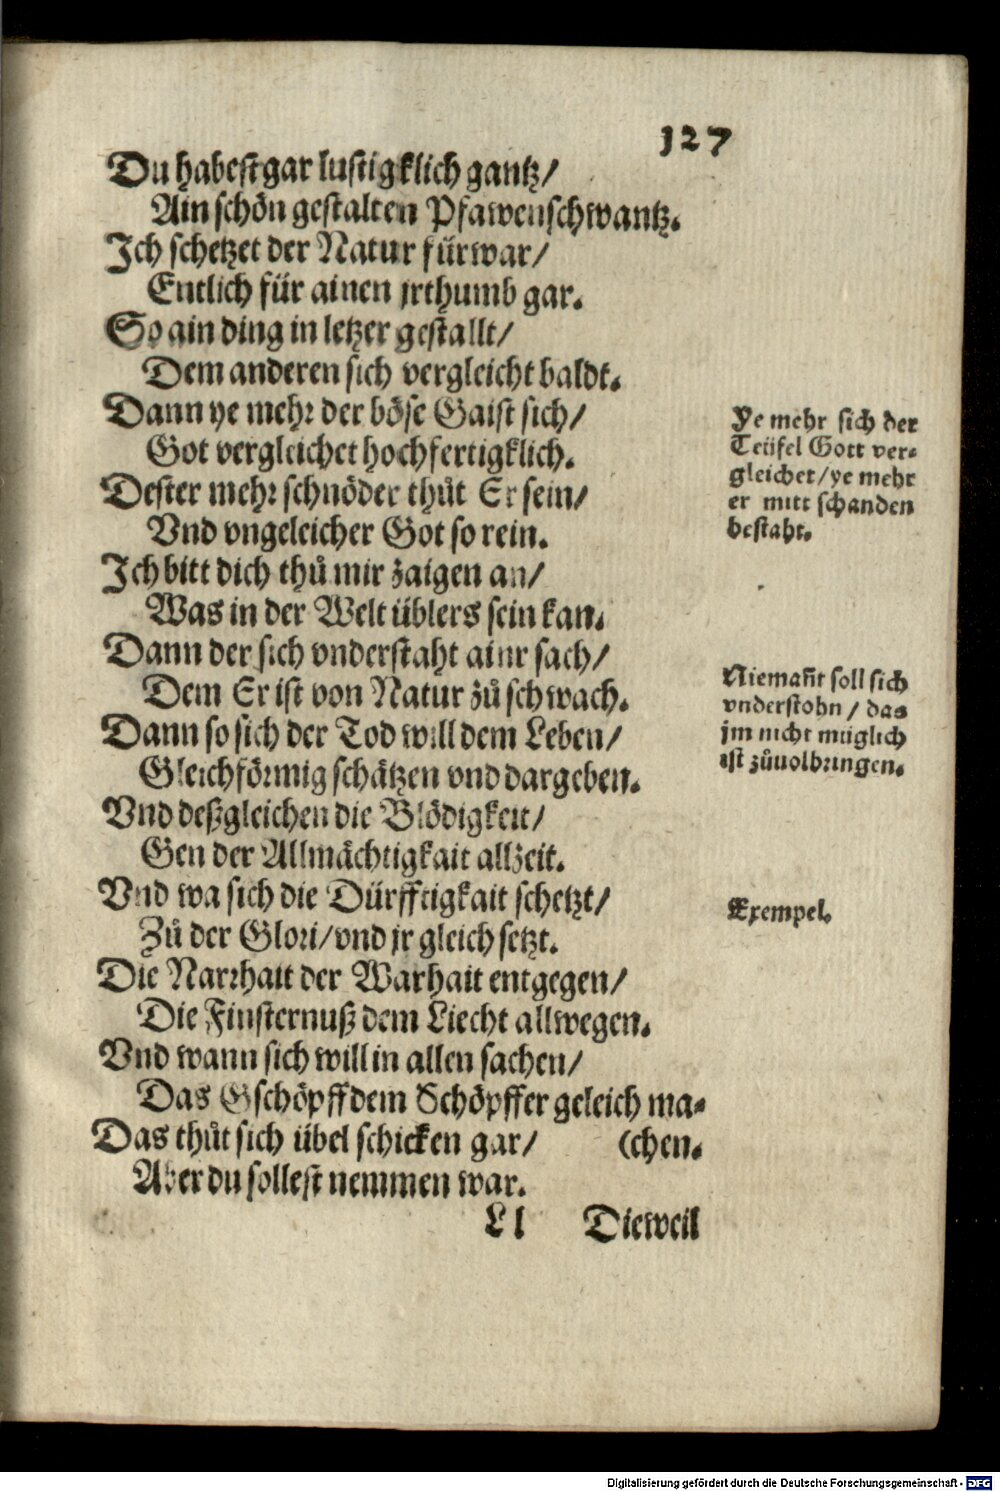 127
Du habest gar lustigklich gantz/
Ain schön gestalten Pfawenschwantz.
Ich schetzet der Natur fürwar/
Entlich für ainen jrthumb gar.
So ain ding in letzer gestallt/
Dem anderen sich vergleicht baldt.
Dann ye mehr der böse Gaist sich/
Got vergleichet hochfertigklich.
Dester mehr schnöder thůt Er sein/
Vnd vngeleicher Got so rein.
Ich bitt dich thů mir zaigen an/
Was in der Welt üblers sein kan.
Dann der sich vnderstaht ainr sach/
Dem Er ist von Natur zů schwach.
Dann so sich der Tod will dem Leben/
Gleichförmig schätzen vnd dargeben.
Vnd deßgleichen die Blödigkeit/
Gen der Allmächtigkait allzeit.
Vnd wa sich die Dürfftigkait schetzt/
Zů der Glori/vnd jr gleich setzt.
Die Narrhait der Warhait entgegen/
Die Finsternuß dem Liecht allwegen.
Vnd wann sich will in allen sachen/
Das Gschöpff dem Schöpffer geleich ma-
Das thůt sich übel schicken gar/ (chen.
Aber du sollest nemmen war.
Ll Dieweil
Ye mehr sich der
Teüfel Gott ver-
gleichet/ye mehr
er mitt schanden
bestaht.
Niemañt soll sich
vnderstohn / das
jm nicht müglich
ist zůuolbringen.
Exempel.
Digitalisierung gefördert durch die Deutsche Forschungsgemeinschaft - DFG